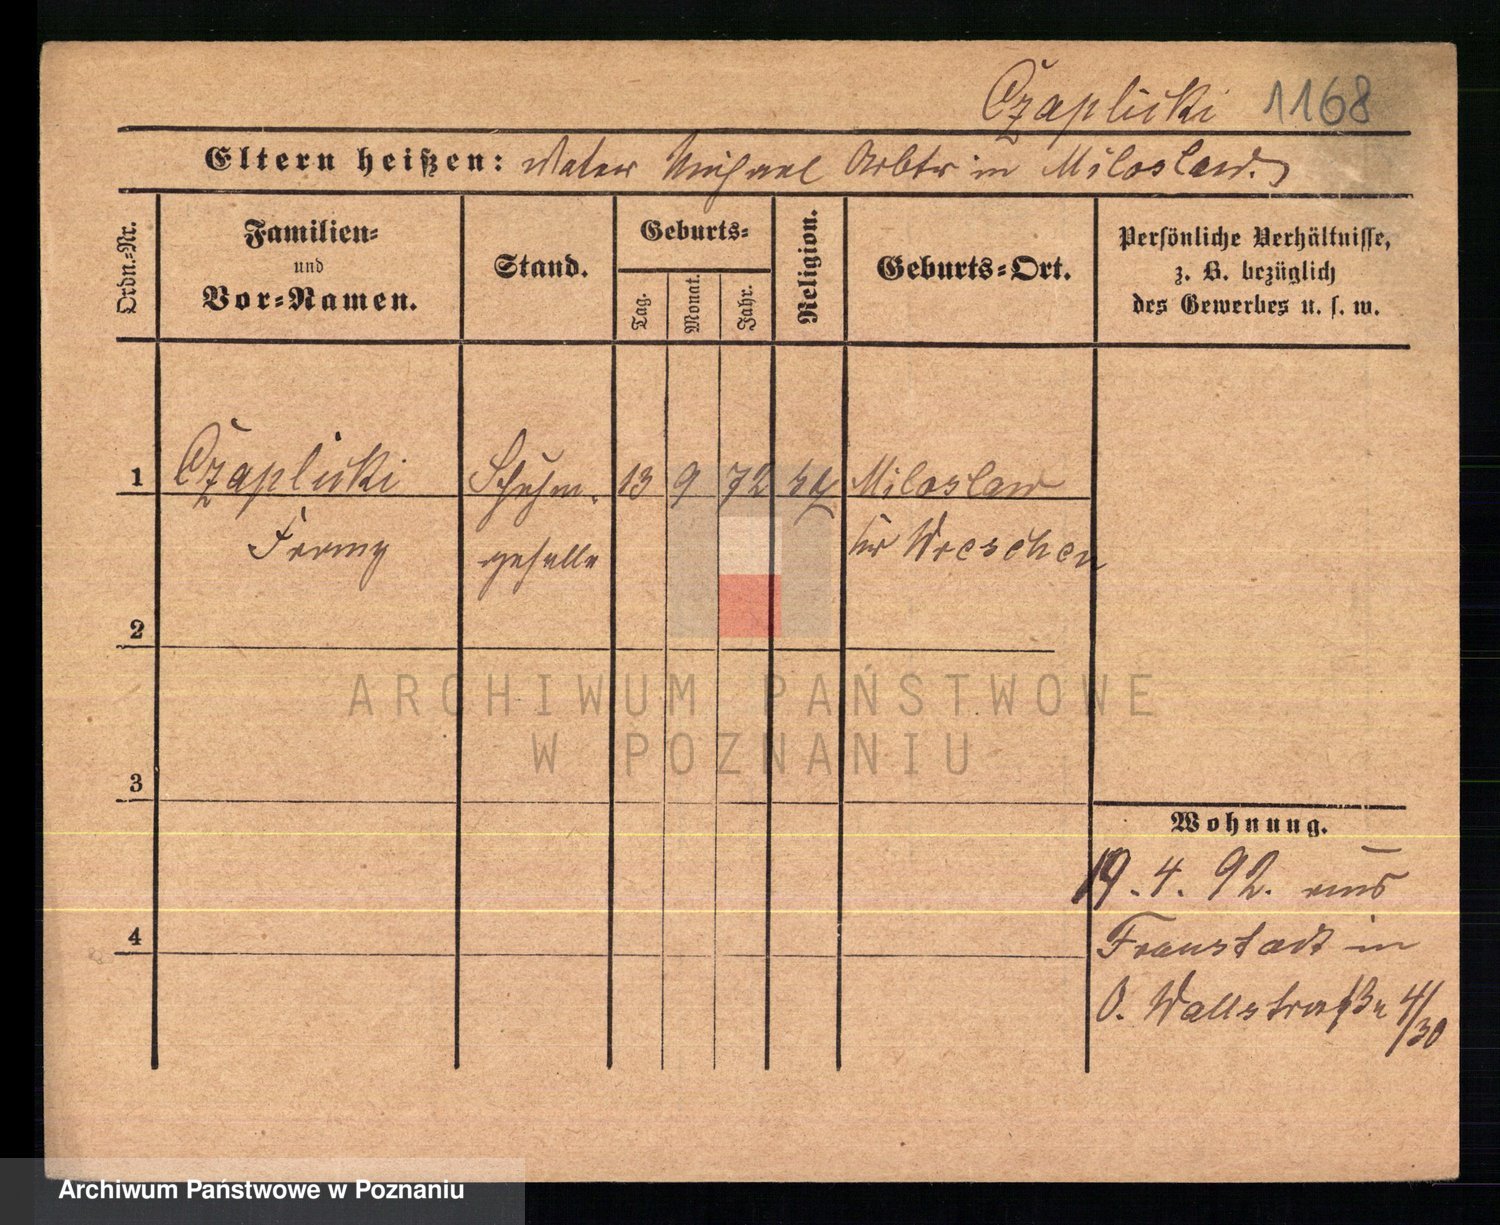 Czaplicki 1168
Eltern heißen: Vater Michael Arbtr in Miloslaw.
Ordn.-Nr.
Familien-
und
Vor-Namen.
Stand.
Geburts-
Tag.
Monat.
Jahr.
Religion.
Geburts-Ort.
Persönliche Verhältnisse,
z. B. bezüglich
des Gewerbes u. s. w.
1 Czaplicki Schuhm. 13 9 72 Miloslaw
Franz geselle Kr Wreschen
2
3
4
Wohnung.
19.4.92. aus
Fraustadt in
O. Wallstraße 4/30
ARCHIWUM PAŃSTWOWE
W POZNANIU
Archiwum Państwowe w Poznaniu